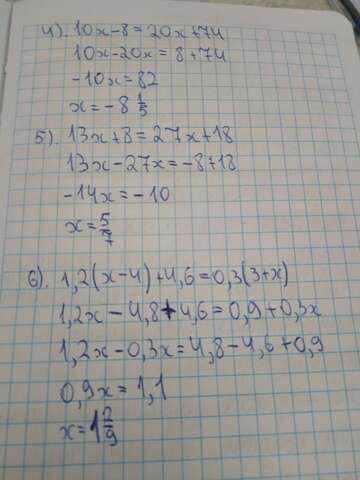 4). 10x-8=20x+74
10x-20x=8+74
-10x=82
x=-8 1/5
5). 13x+8=27x+18
13x-27x=-8+18
-14x=-10
x=5/7
6). 1,2(x-4)+4,6=0,3(3+x)
1,2x-4,8+4,6=0,9+0,3x
1,2x-0,3x=4,8-4,6+0,9
0,9x=1,1
x=1 2/9